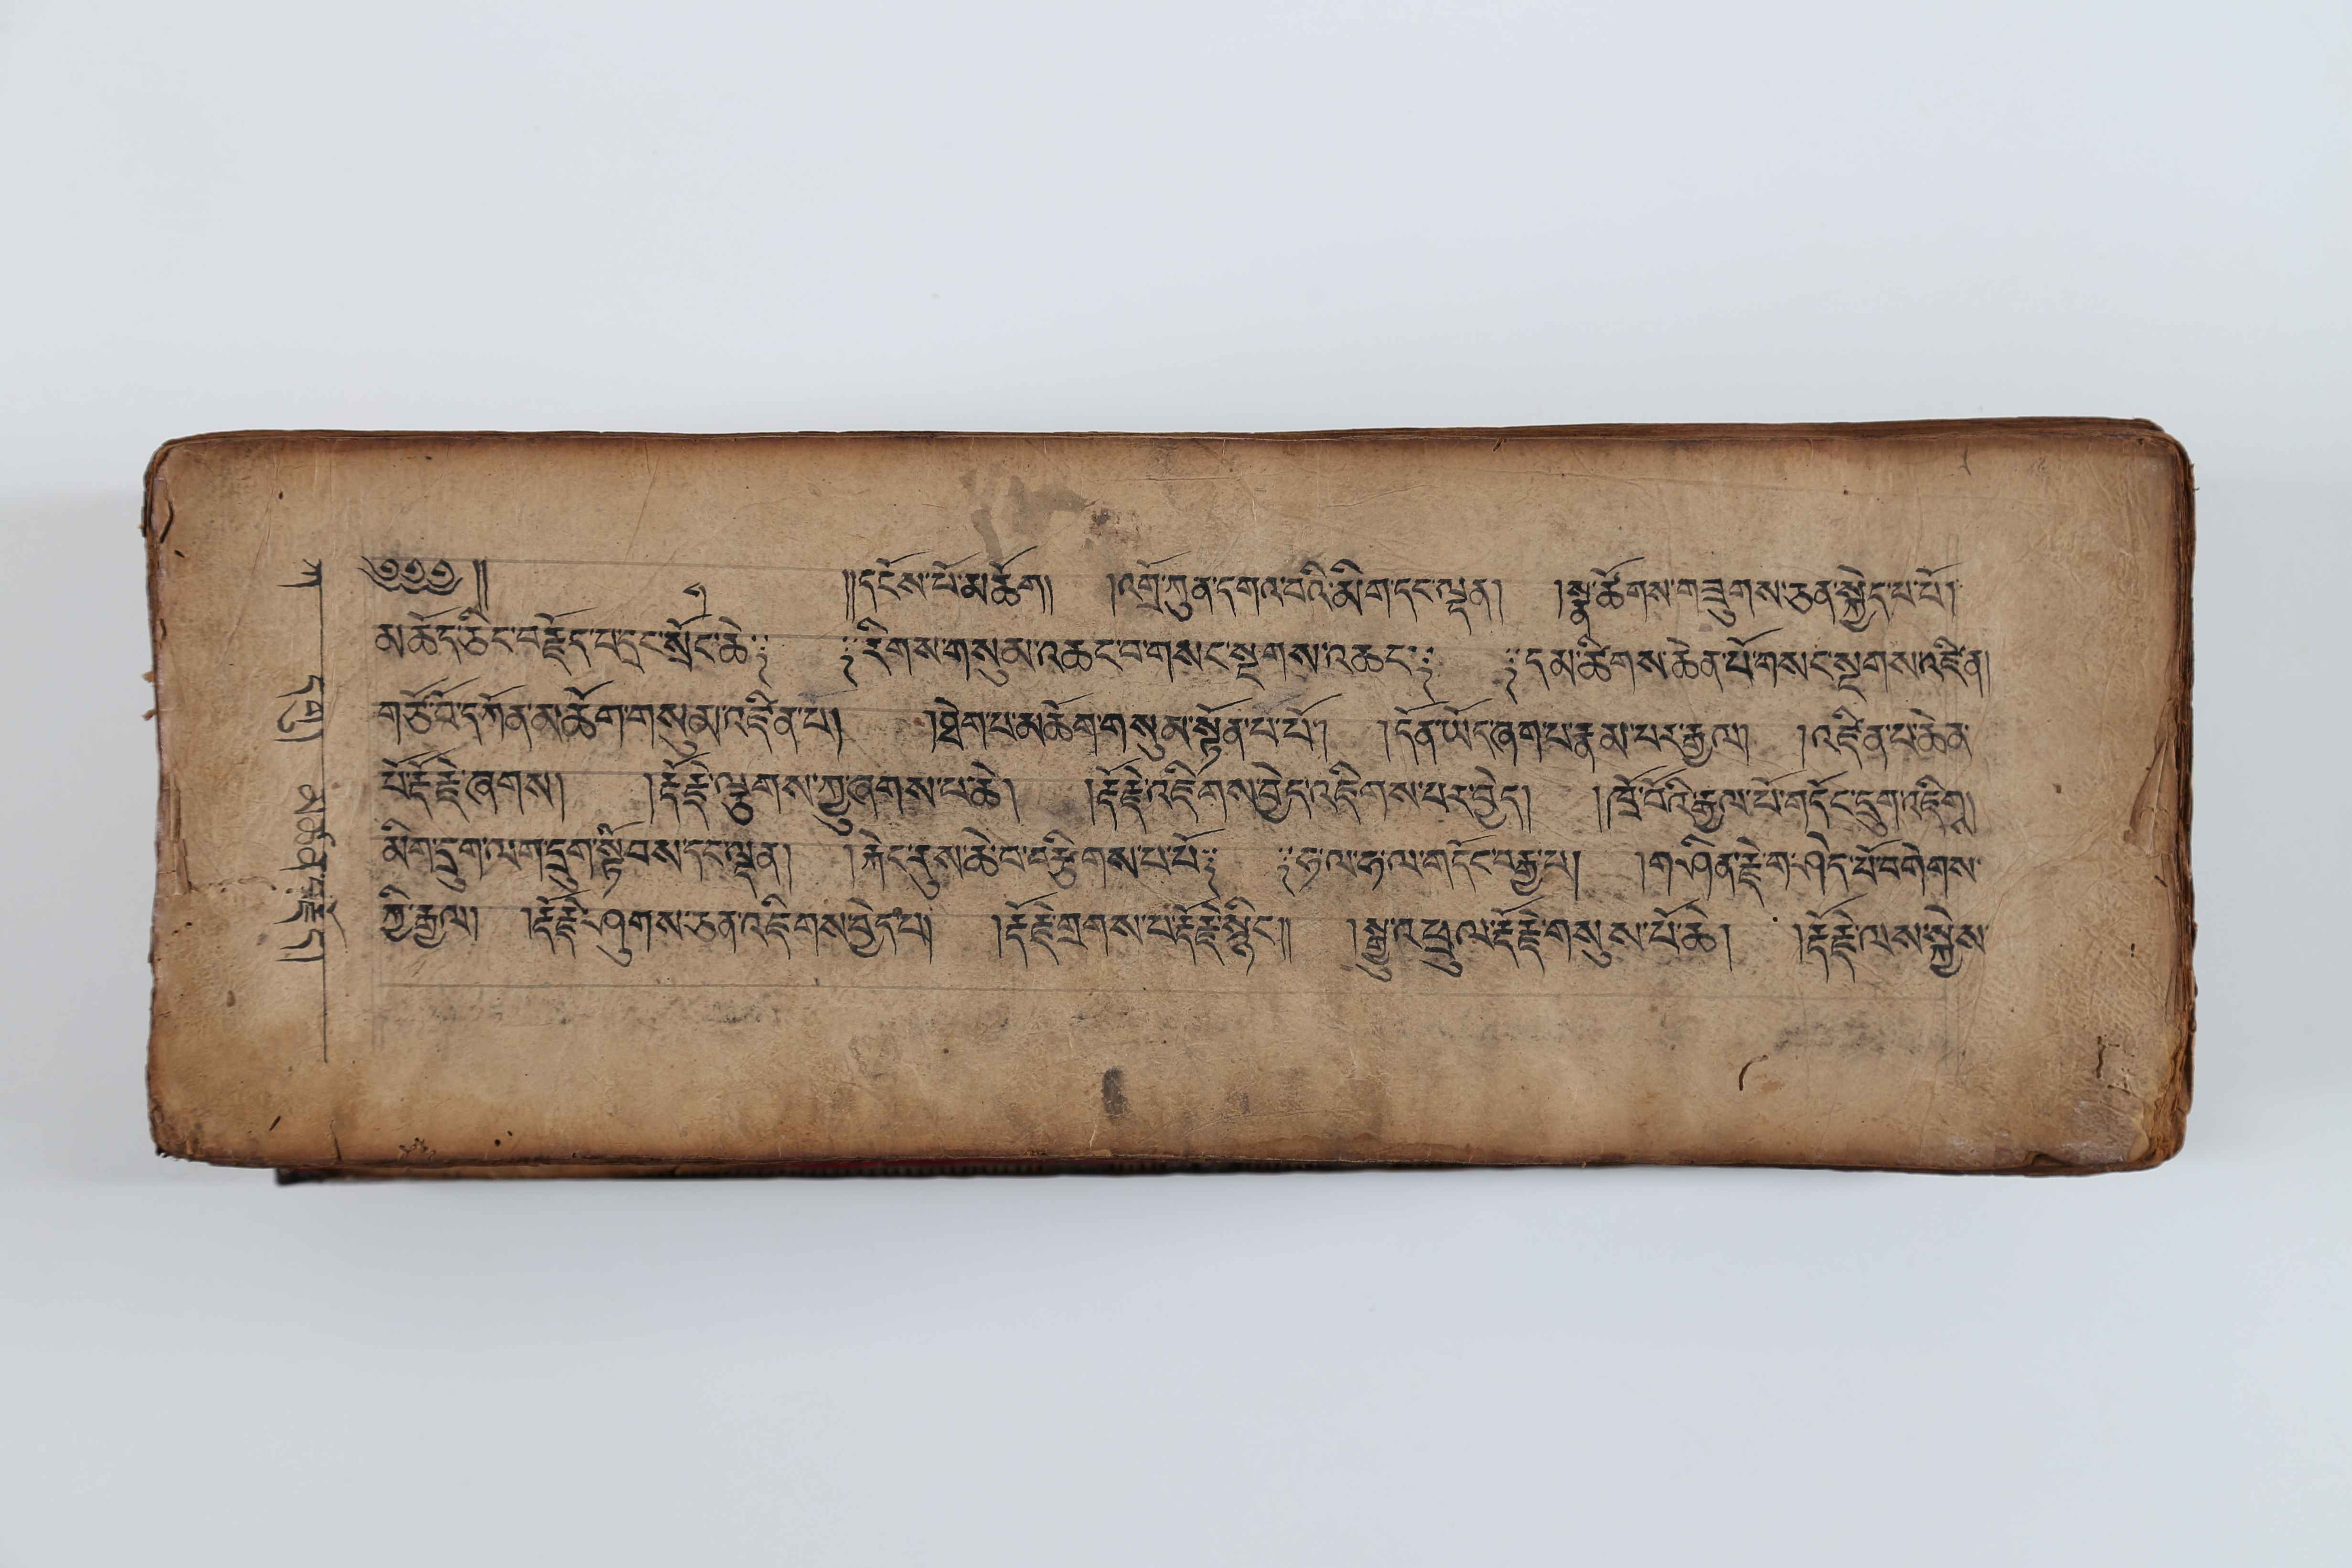 ༄༅༅།། །།དངོས་པོ་མཆོག། །འགྲོ་ཀུན་དགའ་བའི་མིག་དང་ལྡན། །སྣ་ཚོགས་གཟུགས་ཅན་སྐྱེད་པ་པོ།
མཆོད་ཅིང་བརྗོད་པ་དྲང་སྲོང་ཆེ༔ ༔རིགས་གསུམ་འཆང་བ་གསང་སྔགས་འཆང་༔ ༔དམ་ཚིགས་ཆེན་པོ་གསང་སྔགས་འཛིན།
གཙོ་བོ་དཀོན་མཆོག་གསུམ་འཛིན་པ། །ཐེག་པ་མཆོག་གསུམ་སྟོན་པ་པོ། །དོན་ཡོད་ཞག་པ་རྣམ་པར་རྒྱལ། །འཛིན་པ་ཆེན་
པོ་རྡོ་རྗེ་ཞགས། །རྡོ་རྗེ་ལྕགས་ཀྱུ་ཞགས་པ་ཆེ། །རྡོ་རྗེ་འཇིགས་བྱེད་འཇིགས་པར་བྱེད། །ཁྲོ་བོའི་རྒྱལ་པོ་གདོང་དྲུག་འཇིག
མིག་དྲུག་ལག་དྲུག་སྟོབས་དང་ལྡན། །ཀེང་རུས་ཆེ་བ་བརྩིགས་པ་པོ༔ ༔ཧ་ལ་ཧ་ལ་གདོང་བརྒྱ་པ། །གཤིན་རྗེ་གཤེད་པོ་བགེགས་
ཀྱི་རྒྱལ། །རྡོ་རྗེ་ཤུགས་ཅན་འཇིགས་བྱེད་པ། །རྡོ་རྗེ་གྲགས་པ་རྡོ་རྗེ་སྙིང་།། །སྒྱུ་འཕྲུལ་རྡོ་རྗེ་གསུས་པོ་ཆེ། །རྡོ་རྗེ་ལས་སྐྱེས་